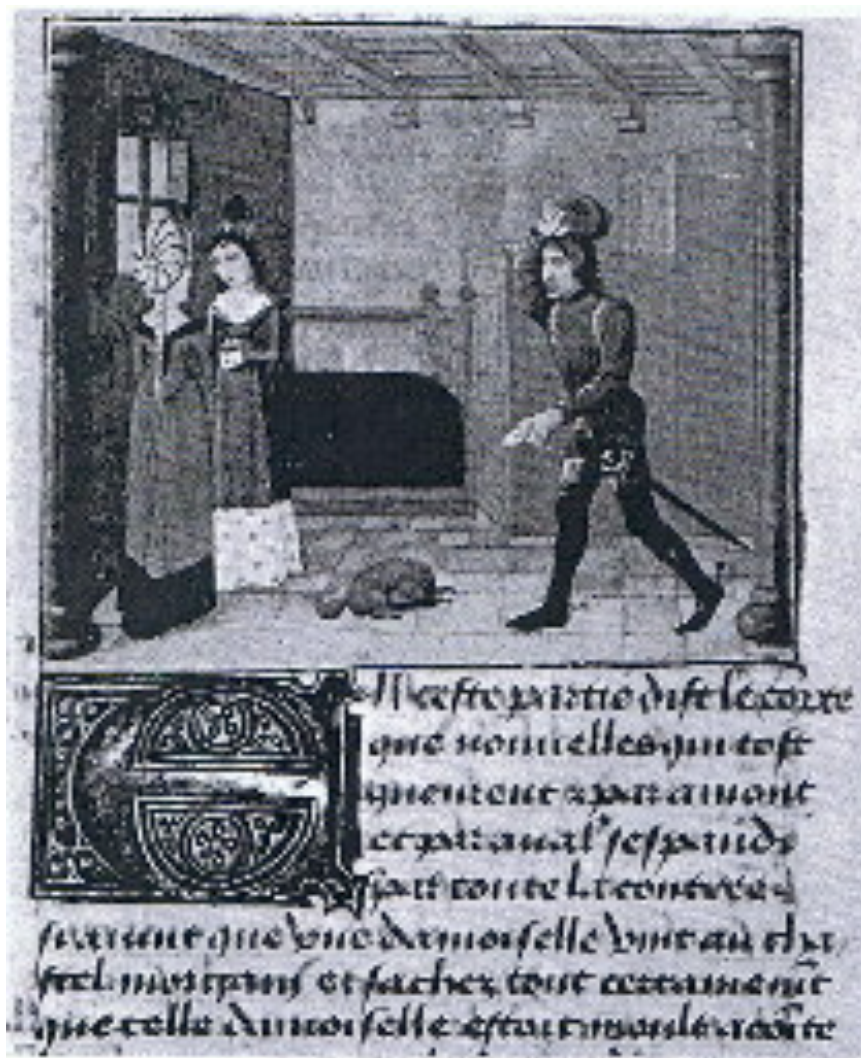 EN ceste partie dist le conte
que nouvelles qui tost
queurent et par amont
et par aval sespandi
par toute la contree
que une damoiselle vint au cha
stel et sachez tout certainement
que celle damoiselle estoit moult acointe